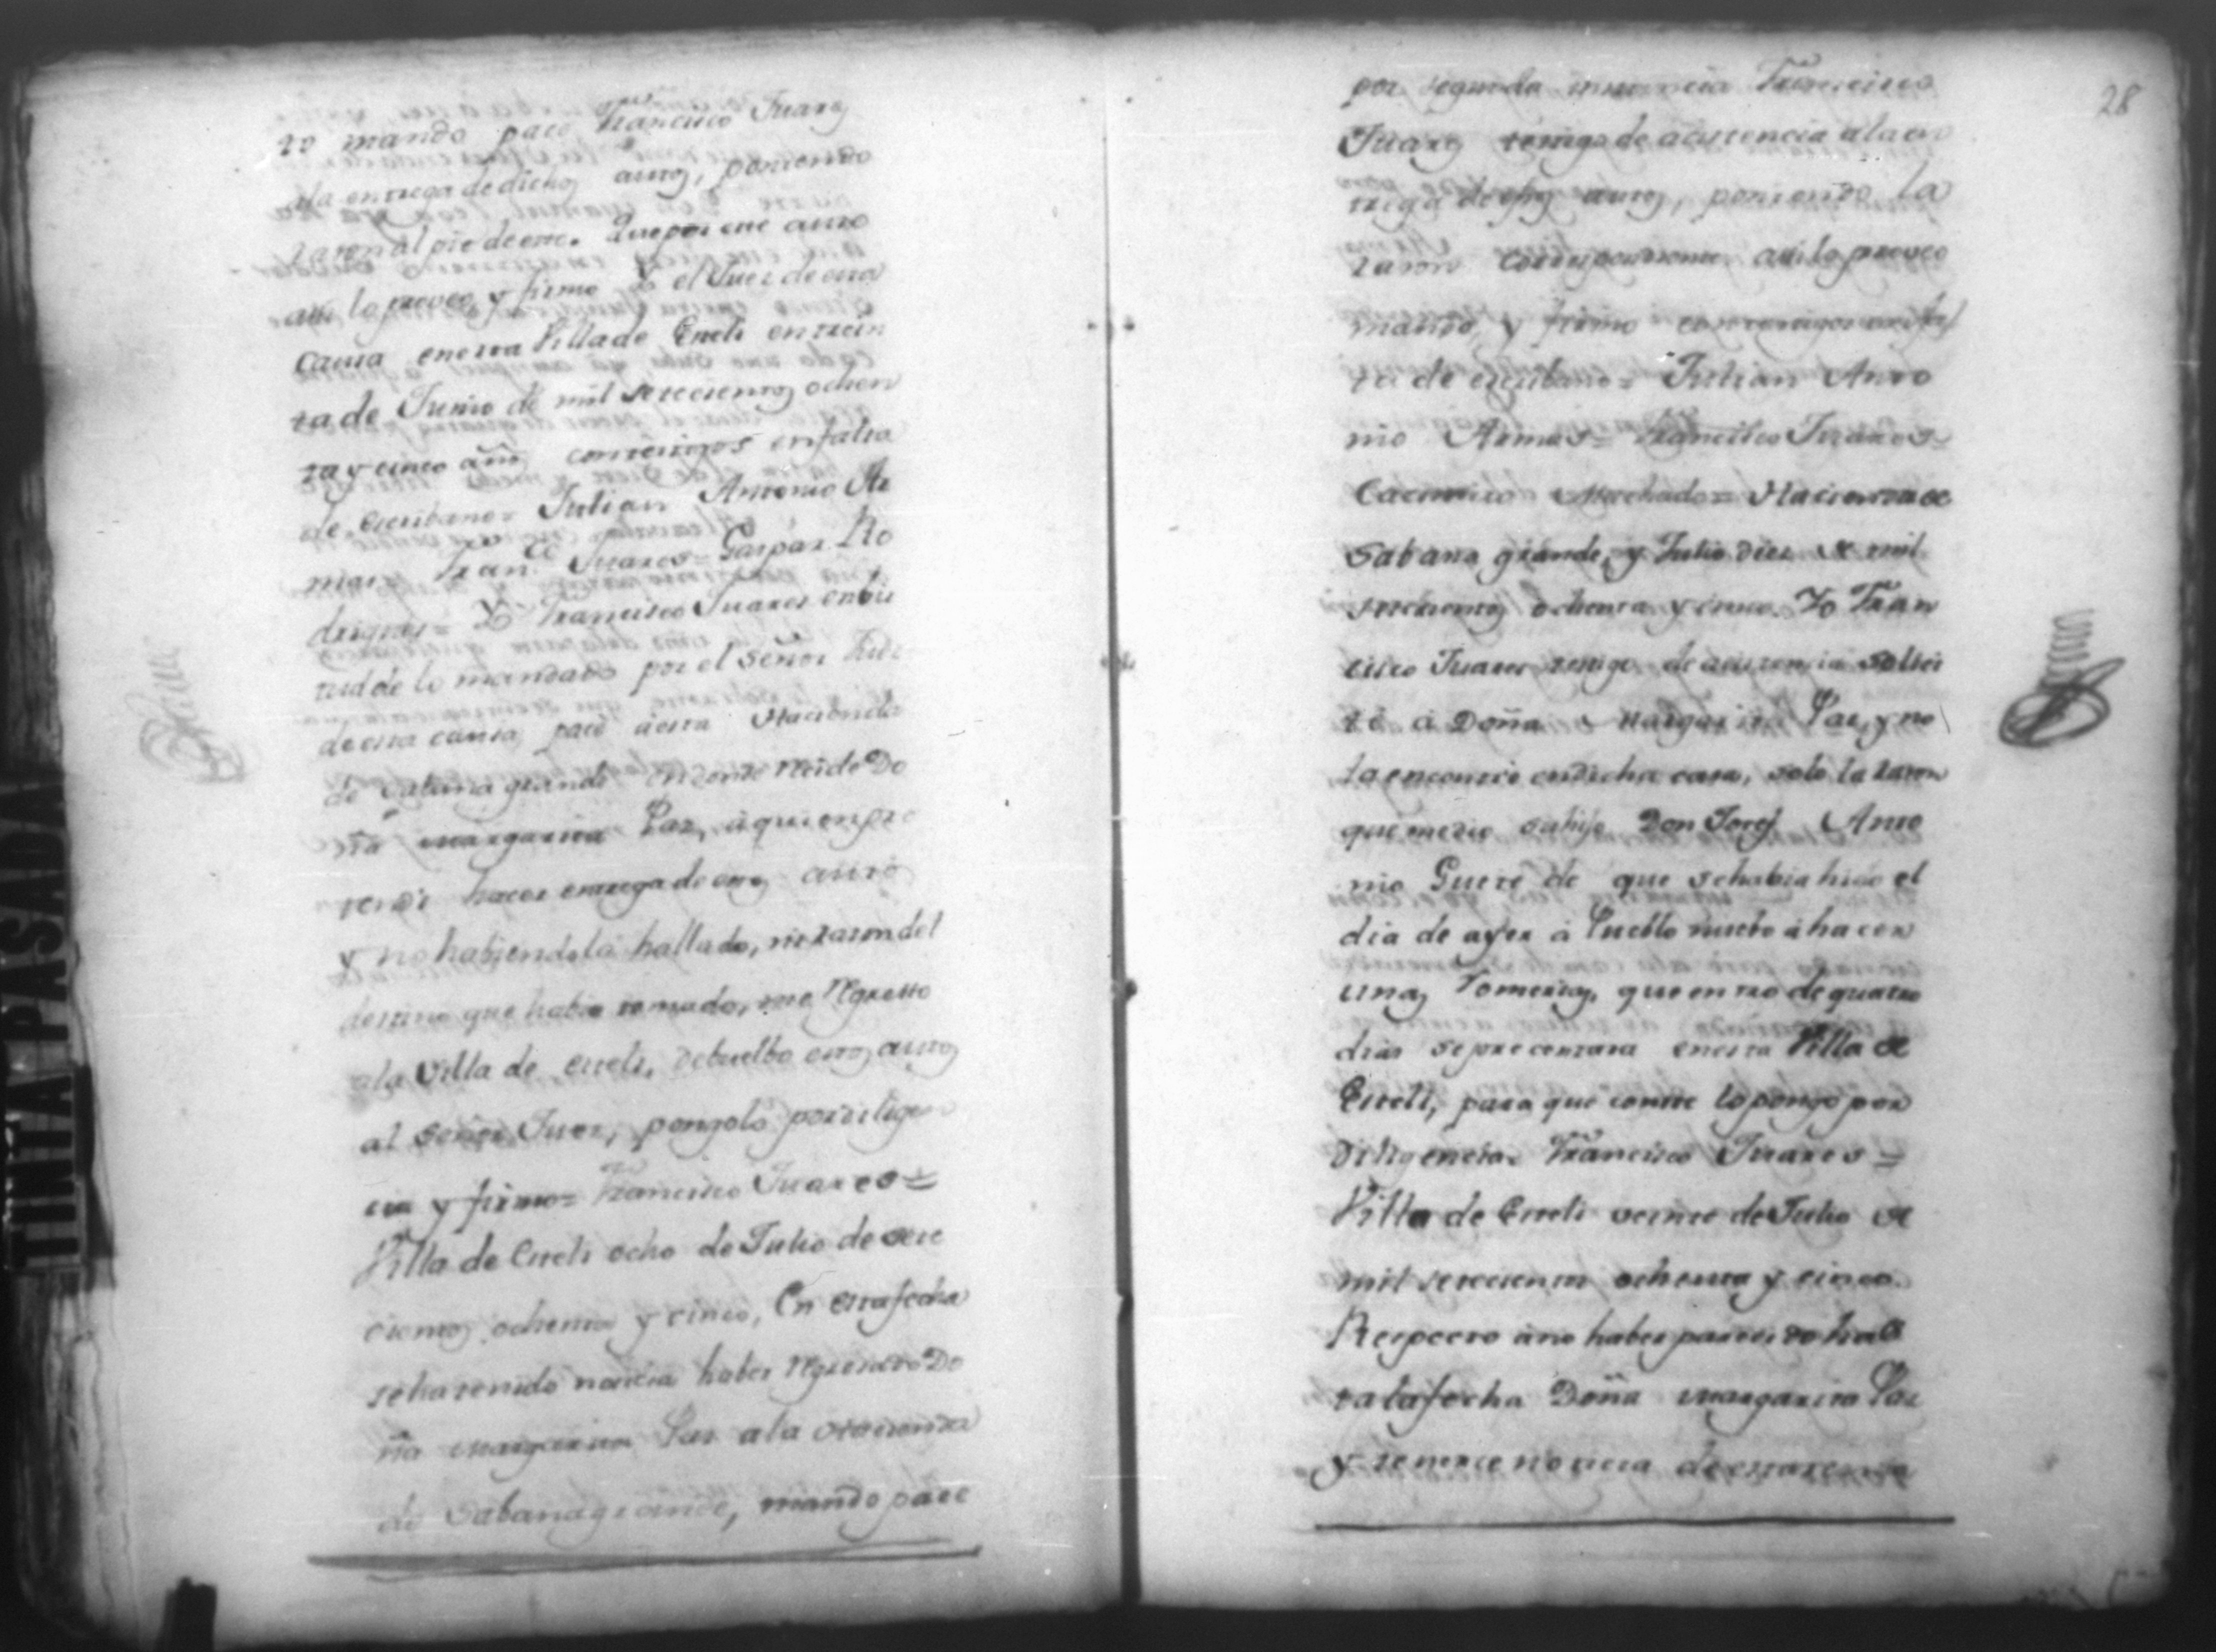 to mando pase Francisco Juarez
ala entrega de dichos autos, poniendo
razon al pie de este. Que por este auto
asi lo proveo, y firmo Yo el Juez de esta
causa en esta Villa de Esteli en trein
ta de Junio de mil setecientos ochen
ta y cinco años con testigos en falta
de Escribano= Julian Antonio Ar
mas= Fran.co Juares= Gaspar Ro
drigues= Yo Francisco Juares en bir
tud de lo mandado por el Señor Juez
de esta causa pasé á esta Hacienda
de Sabana grande en donde recide Do
ña Margarita Paz, á quien pre
tendi hacer entrega de estos autos
y no habiendola hallado, ni razon del
destino que habia tomado, me regreso
ala Villa de Esteli, debuelbo estos autos
al Señor Juez, pongolo por diligen
cia y firmo= Francisco Juares=
Villa de Esteli ocho de Julio de sete
cientos ochenta y cinco, En esta fecha
se ha tenido noticia haber regresado Do
ña Margarita Paz ala Hacienda
de Sabana grande, mando pase
28
por segunda instancia Francisco
Juarez testigo de acistencia ala en
trega de estos autos, poniendo la
razon correspondiente asi lo proveo
mando, y firmo con testigos en fal
ta de escribano= Julian Anto
nio Armas= Francisco Juares=
Cacimiro Machado= Hacienda de
Sabana grande, y Julio diez de mil
setecientos ochenta y cinco. Yo Fran
cisco Juares testigo de acistencia solici
té á Doña Margarita Paz, y no
la encontré en dicha casa, solo la razon
que me dio su hijo Don Jorej Anto
nio Guete de que se habia hido el
dia de ayer á Pueblo nuebo á hacer
unas Tomerias, que en tro de quatro
dias se precentara en esta Villa de
Esteli, para que conste lo pongo por
Diligencia. Francisco Juares=
Villa de Esteli veinte de Julio de
mil setecientos ochenta y cinco.
Respecto á no haber parecido has
ta la fecha Doña Margarita Paz
y tenerce noticia de estar en